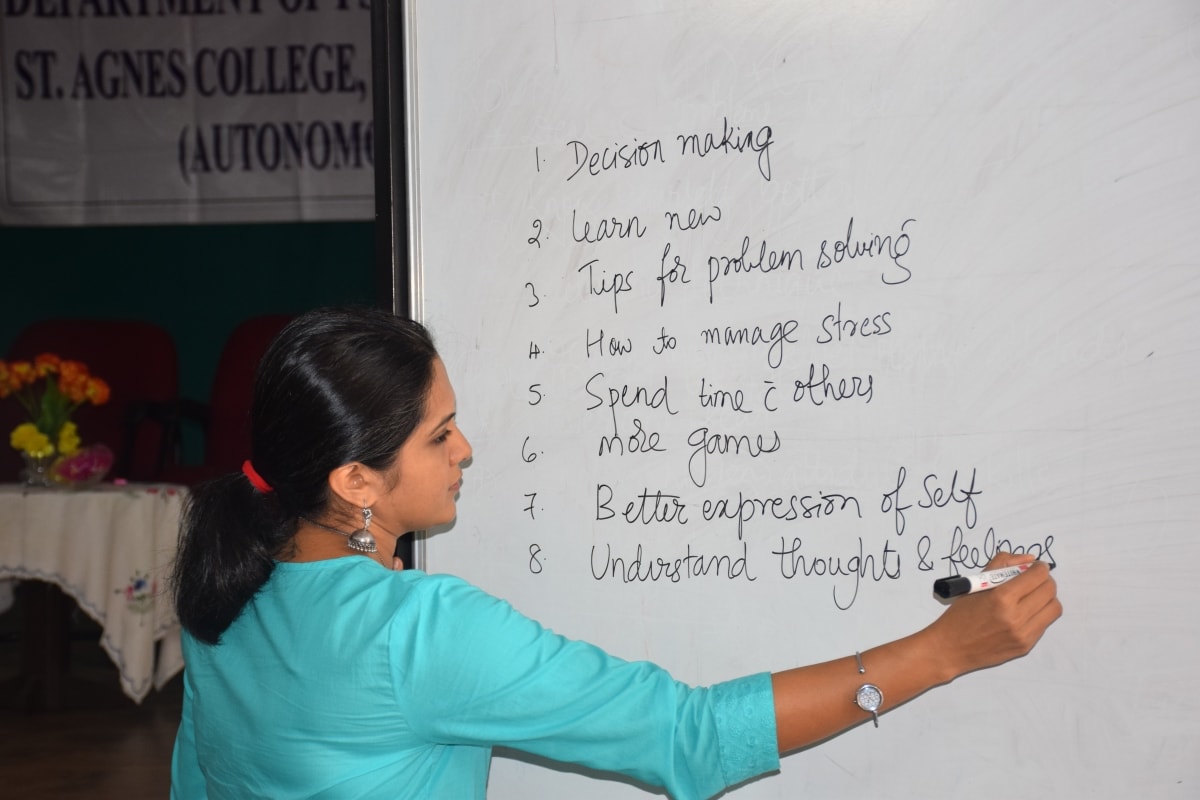 DEPARTMENT OF
ST. AGNES COLLEGE,
(AUTONOMO
1. Decision making
2. Learn new
3. Tips for problem solving
4. How to manage stress
5. Spend time c̄ others
6. more games
7. Better expression of Self
8. Understand thoughts & feelings